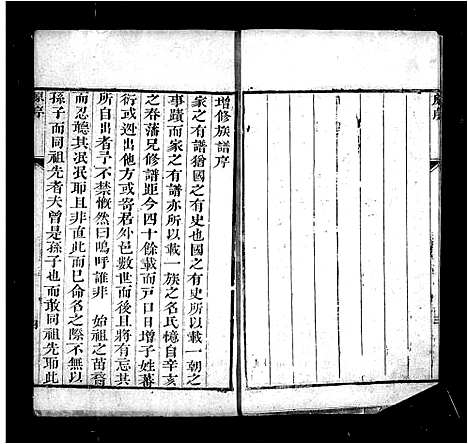 增修族譜序
家之有譜猶國之有史也國之有史所以載一朝之
事蹟而家之有譜亦所以載一族之名氏憶自辛亥
之春藩兄修譜距今四十餘載而戶口日增子姓蕃
衍或迻出他方或寄居外邑數世而後且將有忘其
所自出者予不禁慨然曰嗚呼誰非 始祖之苗裔
而忍聽其泯泯耶且非直此而已命名之際不無以
孫子而同祖先者夫曾是孫子也而敢同祖先耶此